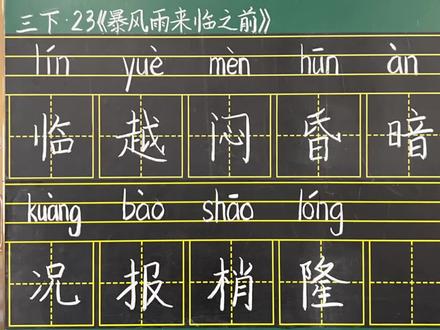 三下·23《暴风雨来临之前》
lín yuè mèn hūn àn
临 越 闷 昏 暗
kuàng bào shāo lóng
况 报 梢 隆